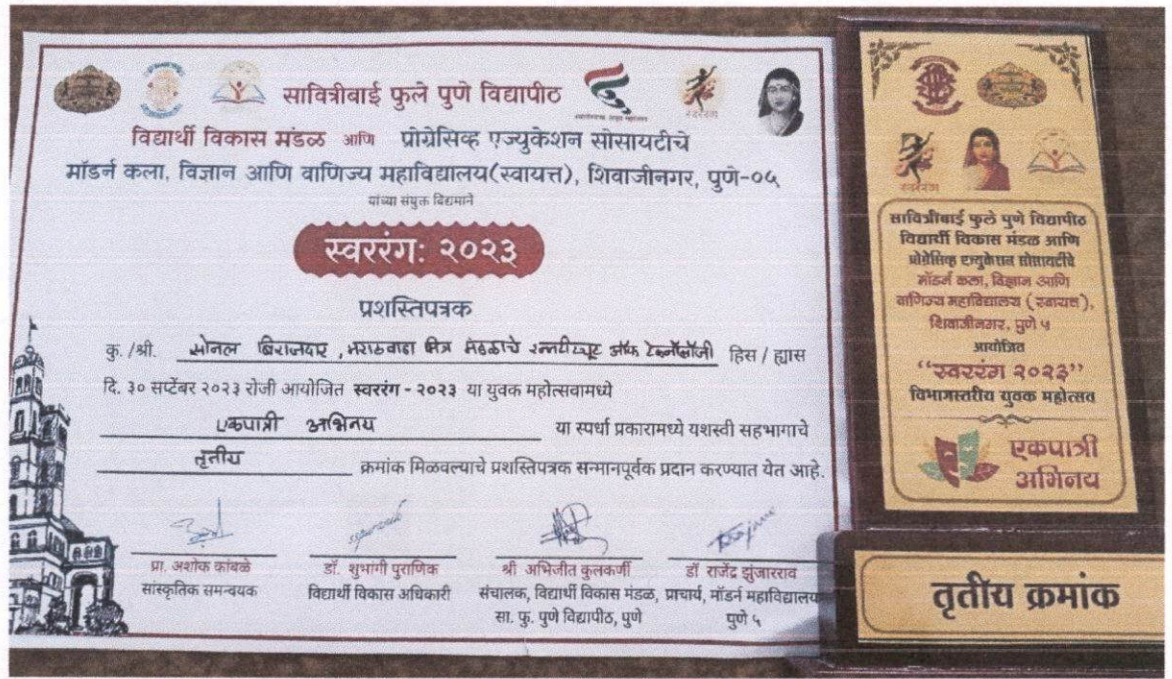 सावित्रीबाई फुले पुणे विद्यापीठ
विद्यार्थी विकास मंडळ आणि प्रोग्रेसिव्ह एज्युकेशन सोसायटीचे
मॉडर्न कला, विज्ञान आणि वाणिज्य महाविद्यालय(स्वायत्त), शिवाजीनगर, पुणे-०५
यांच्या संयुक्त विद्यमाने
स्वररंग: २०२३
प्रशस्तिपत्रक
कु. /श्री. सोनल बिराजदार, मराठवाडा मित्र मंडळाचे इन्स्टीट्यूट ऑफ टेक्नॉलॉजी हिस / ह्यास
दि. ३० सप्टेंबर २०२३ रोजी आयोजित स्वररंग - २०२३ या युवक महोत्सवामध्ये
एकपात्री अभिनय या स्पर्धा प्रकारामध्ये यशस्वी सहभागाचे
तृतीय क्रमांक मिळवल्याचे प्रशस्तिपत्रक सन्मानपूर्वक प्रदान करण्यात येत आहे.
प्रा. अशोक कांबळे
सांस्कृतिक समन्वयक
डॉ. शुभांगी पुराणिक
विद्यार्थी विकास अधिकारी
श्री अभिजीत कुलकर्णी
संचालक, विद्यार्थी विकास मंडळ,
सा. फु. पुणे विद्यापीठ, पुणे
डॉ राजेंद्र झुंजारराव
प्राचार्य, मॉडर्न महाविद्यालय
पुणे ५
स्वररंग
सावित्रीबाई फुले पुणे विद्यापीठ
विद्यार्थी विकास मंडळ आणि
प्रोग्रेसिव्ह एज्युकेशन सोसायटीचे
मॉडर्न कला, विज्ञान आणि
वाणिज्य महाविद्यालय (स्वायत्त),
शिवाजीनगर, पुणे ५
आयोजित
“स्वररंग २०२३”
विभागस्तरीय युवक महोत्सव
एकपात्री
अभिनय
तृतीय क्रमांक